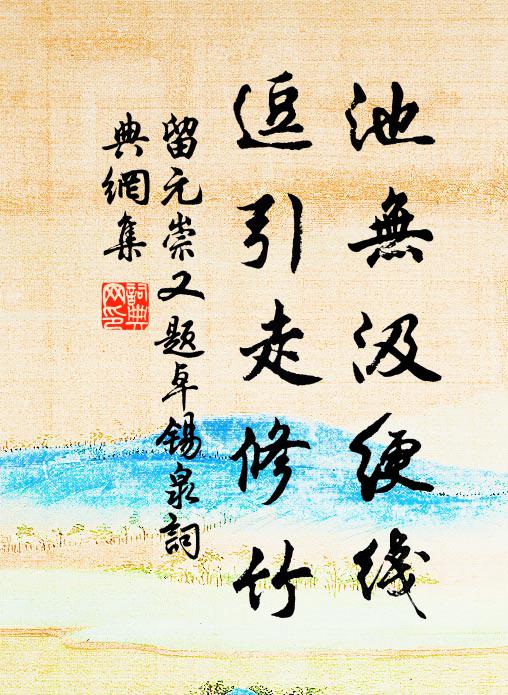 池無汲綆綫
逗引走修竹
留元崇又題卓錫泉詞
典網集
詞典網印